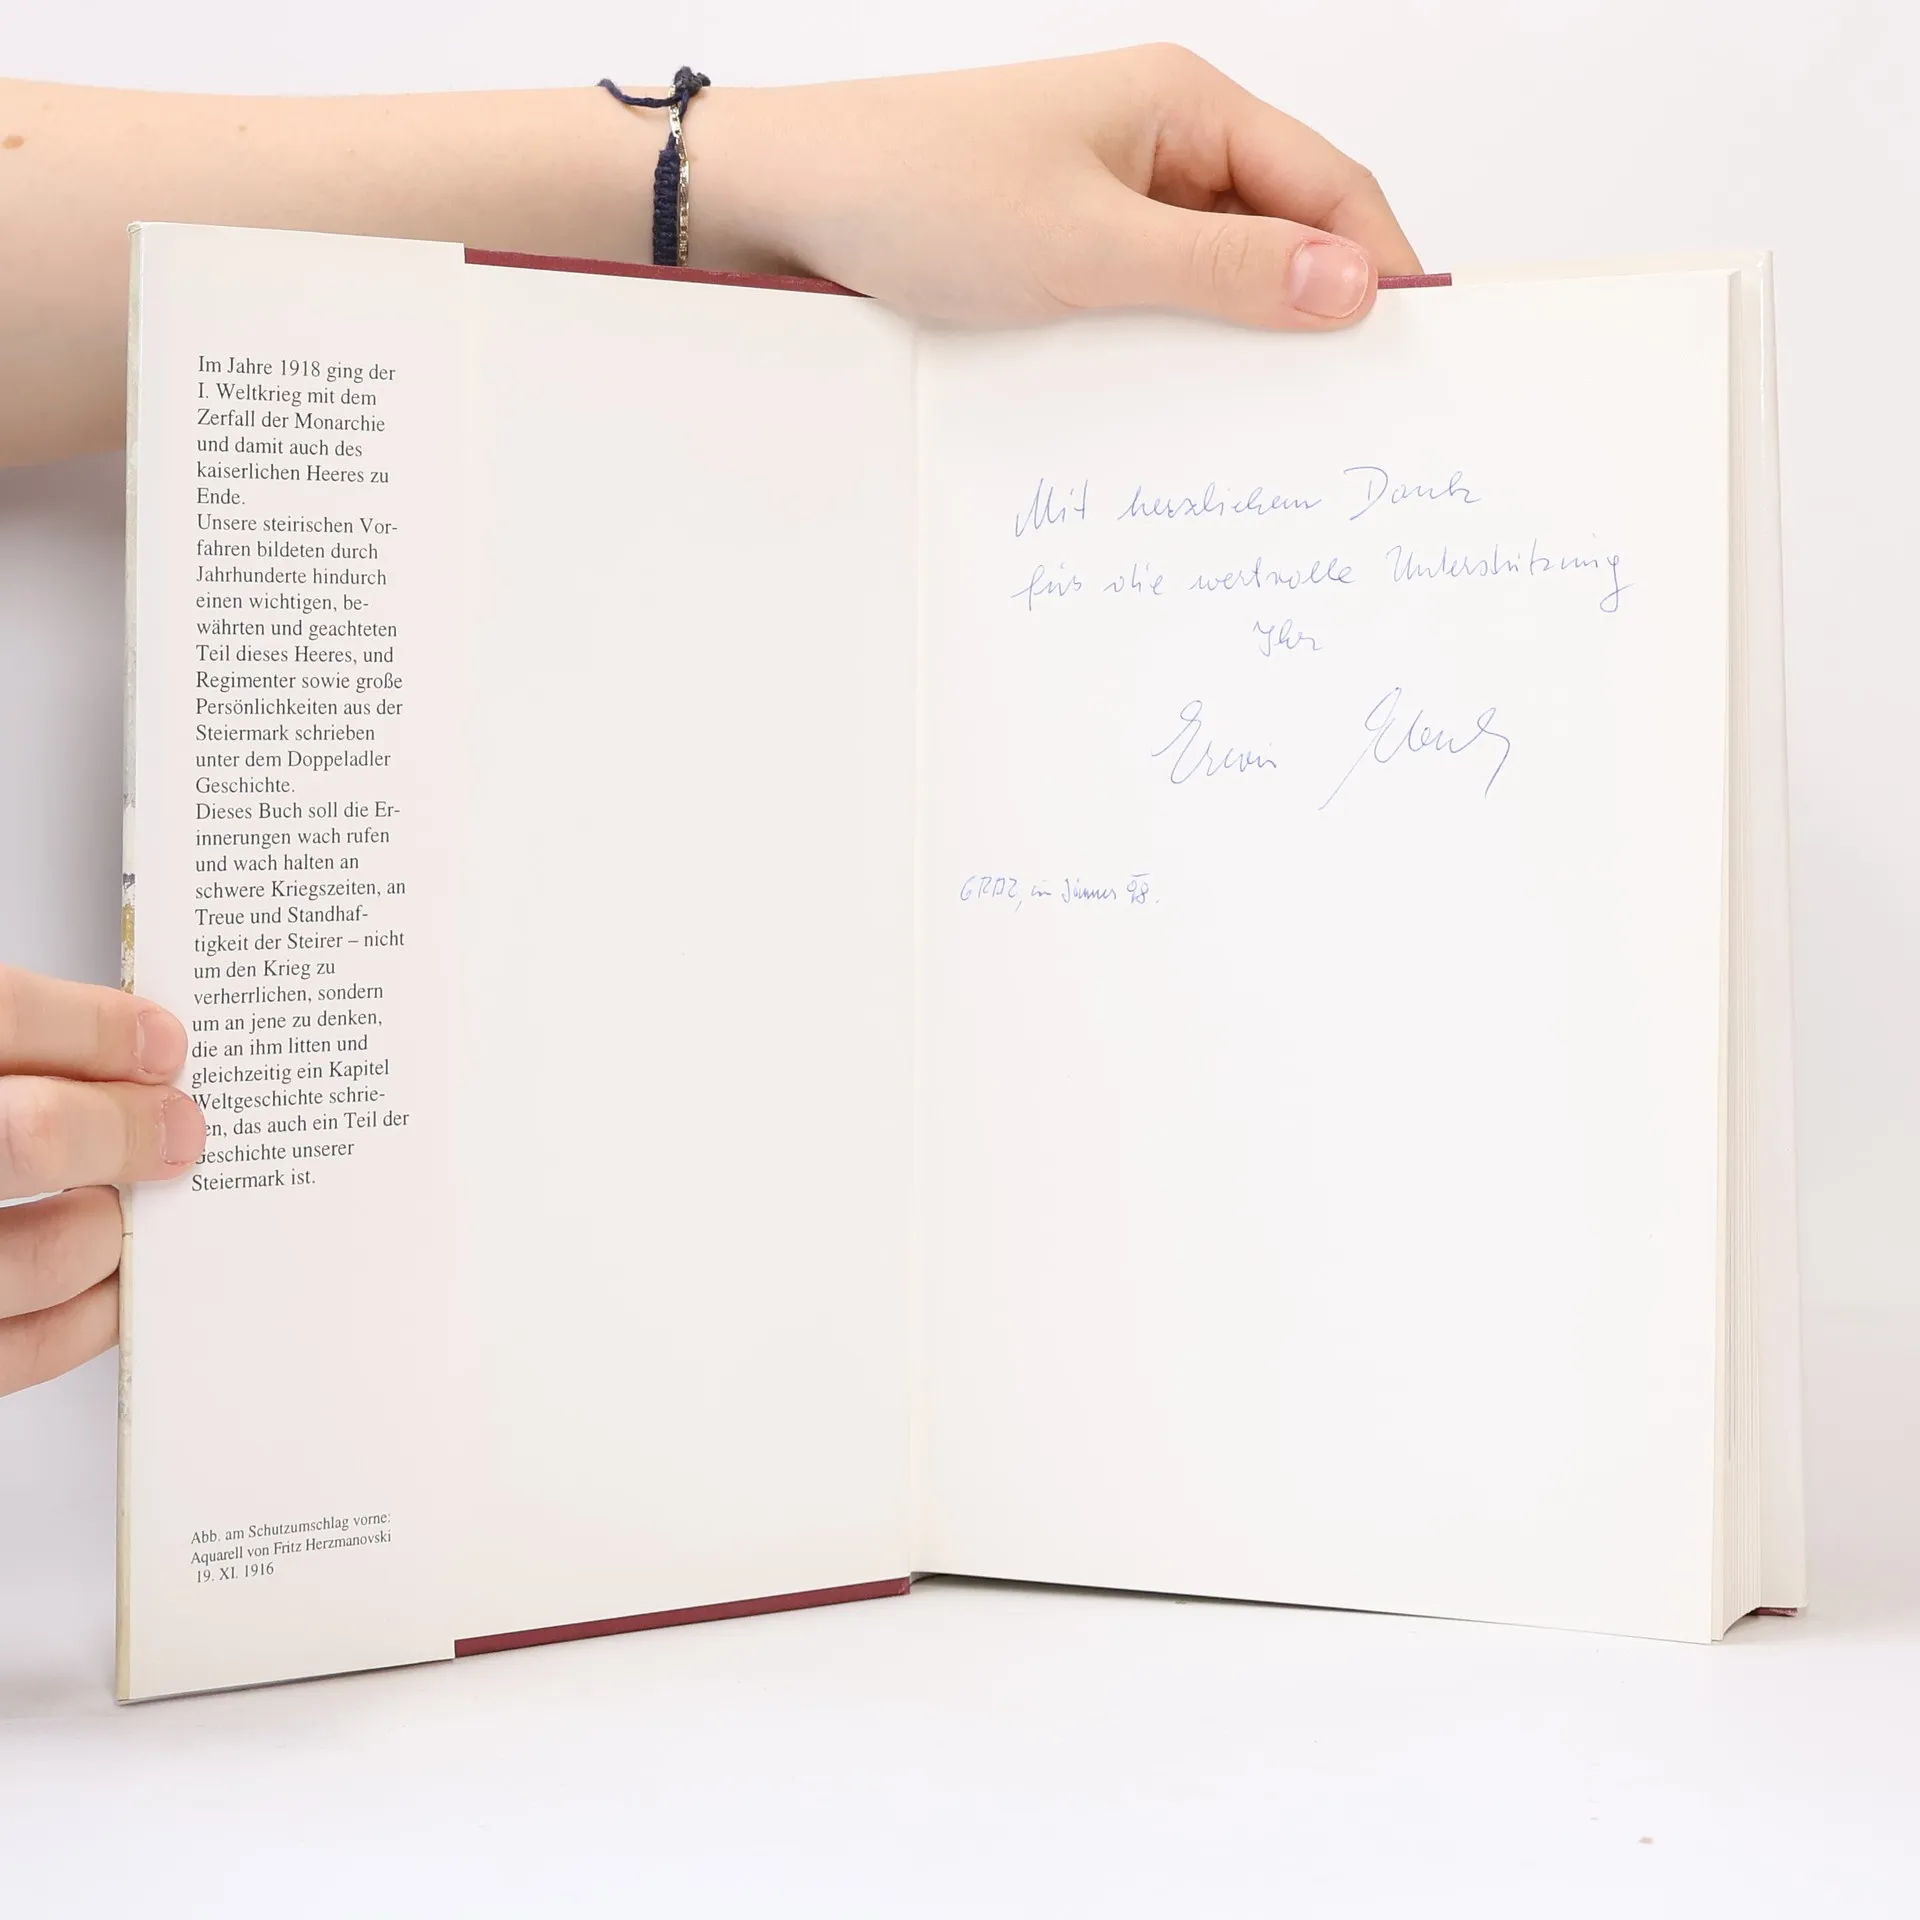 Im Jahre 1918 ging der
I. Weltkrieg mit dem
Zerfall der Monarchie
und damit auch des
kaiserlichen Heeres zu
Ende.
Unsere steirischen Vor-
fahren bildeten durch
Jahrhunderte hindurch
einen wichtigen, be-
währten und geachteten
Teil dieses Heeres, und
Regimenter sowie große
Persönlichkeiten aus der
Steiermark schrieben
unter dem Doppeladler
Geschichte.
Dieses Buch soll die Er-
innerungen wach rufen
und wach halten an
schwere Kriegszeiten, an
Treue und Standhaf-
tigkeit der Steirer – nicht
um den Krieg zu
verherrlichen, sondern
um an jene zu denken,
die an ihm litten und
gleichzeitig ein Kapitel
Weltgeschichte schrie-
en, das auch ein Teil der
Geschichte unserer
Steiermark ist.
Abb. am Schutzumschlag vorne:
Aquarell von Fritz Herzmanovski
19. XI. 1916
Mit herzlichem Dank
für die wertvolle Unterstützung
Ihr
Erwin
GRAZ, im Jänner 98.